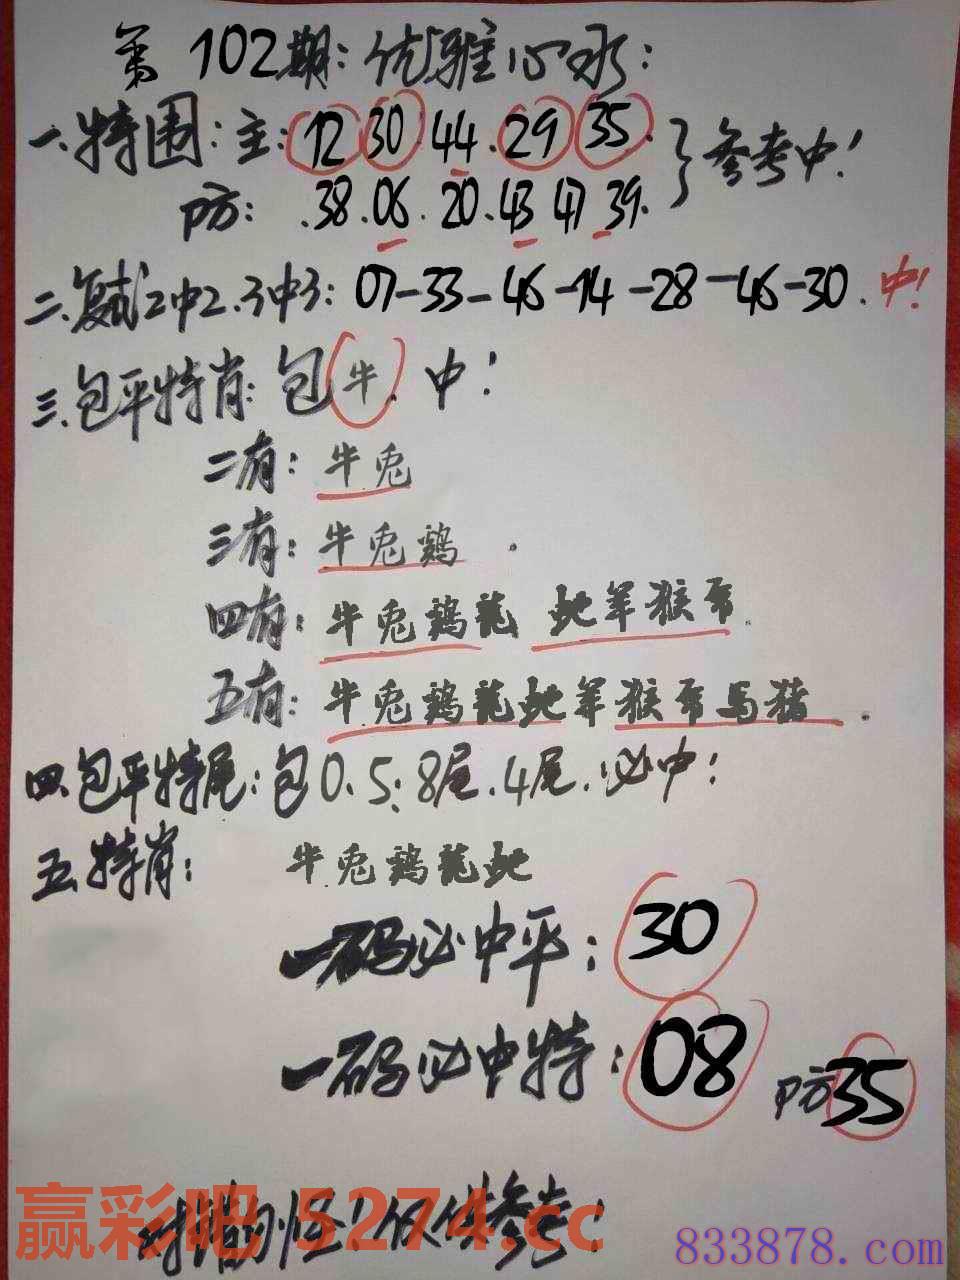 第102期:优雅心水:
一.特围:主:12 30 44.29 35.}参考中!
防:.38.06.20.43 47 39.
二.复式2中2.3中3:07-33-46-14-28-46-30.中!
三.包平特肖:包牛.中!
二有:牛兔
三有:牛兔鸡.
四有:牛兔鸡龙 蛇羊猴.
五有:牛兔鸡龙蛇羊猴马猪.
四.包平特尾:包0.5:8尾.4尾.必中!
五.特肖: 牛兔鸡龙蛇
一码必中平:30
一码必中特:08 防35
对错勿怪!仅供参考!
赢彩吧 5274.cc
833878.com